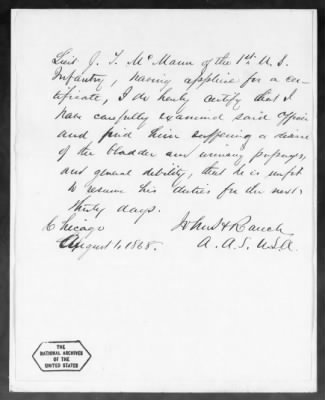 Lieut J. T. McMann of the 1st U.S.
Infantry, having applied for a cer-
tificate, I do hereby certify that I
have carefully examined said Officer
and find him suffering a disease
of the bladder and urinary passages,
and general debility, that he is unfit
to resume his duties for the next
thirty days.
Chicago John H Rauch
August 1, 1868. A. A. S. U.S.A.
THE
NATIONAL ARCHIVES
OF THE
UNITED STATES